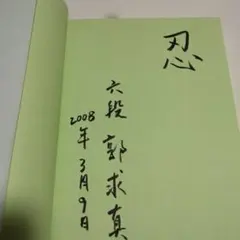 忍
六段 郭求真
2008年3月9日